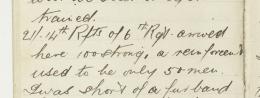 trained.
21/- 14th Rfts of 6th Rgt. arrived
here 100 strong, a reinforcement
used to be only 50 men.
I was shot'd of a husband